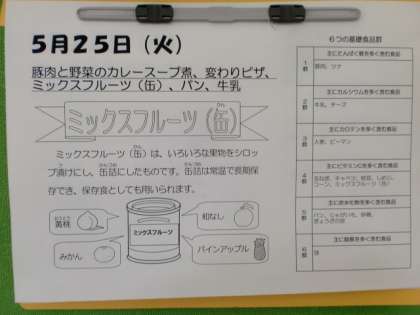 5月25日（火）
豚肉と野菜のカレースープ煮、変わりピザ、
ミックスフルーツ（缶）、パン、牛乳
ミックスフルーツ（缶）
ミックスフルーツ（缶）は、いろいろな果物をシロッ
プ漬けにし、缶詰にしたものです。缶詰は常温で長期保
存でき、保存食としても用いられます。
黄桃
みかん
ミックスフルーツ
和なし
パインアップル
6つの基礎食品群
主にたんぱく質を多く含む食品
1群
豚肉、ツナ
主にカルシウムを多く含む食品
2群
牛乳、チーズ
主にカロテンを多く含む食品
3群
人参、ピーマン
主にビタミンCを多く含む食品
4群
玉ねぎ、キャベツ、枝豆、しめじ、
コーン、ミックスフルーツ（缶）
主に炭水化物を多く含む食品
5群
パン、じゃがいも、砂糖、
ぎょうざの皮
主に脂質を多く含む食品
6群
油